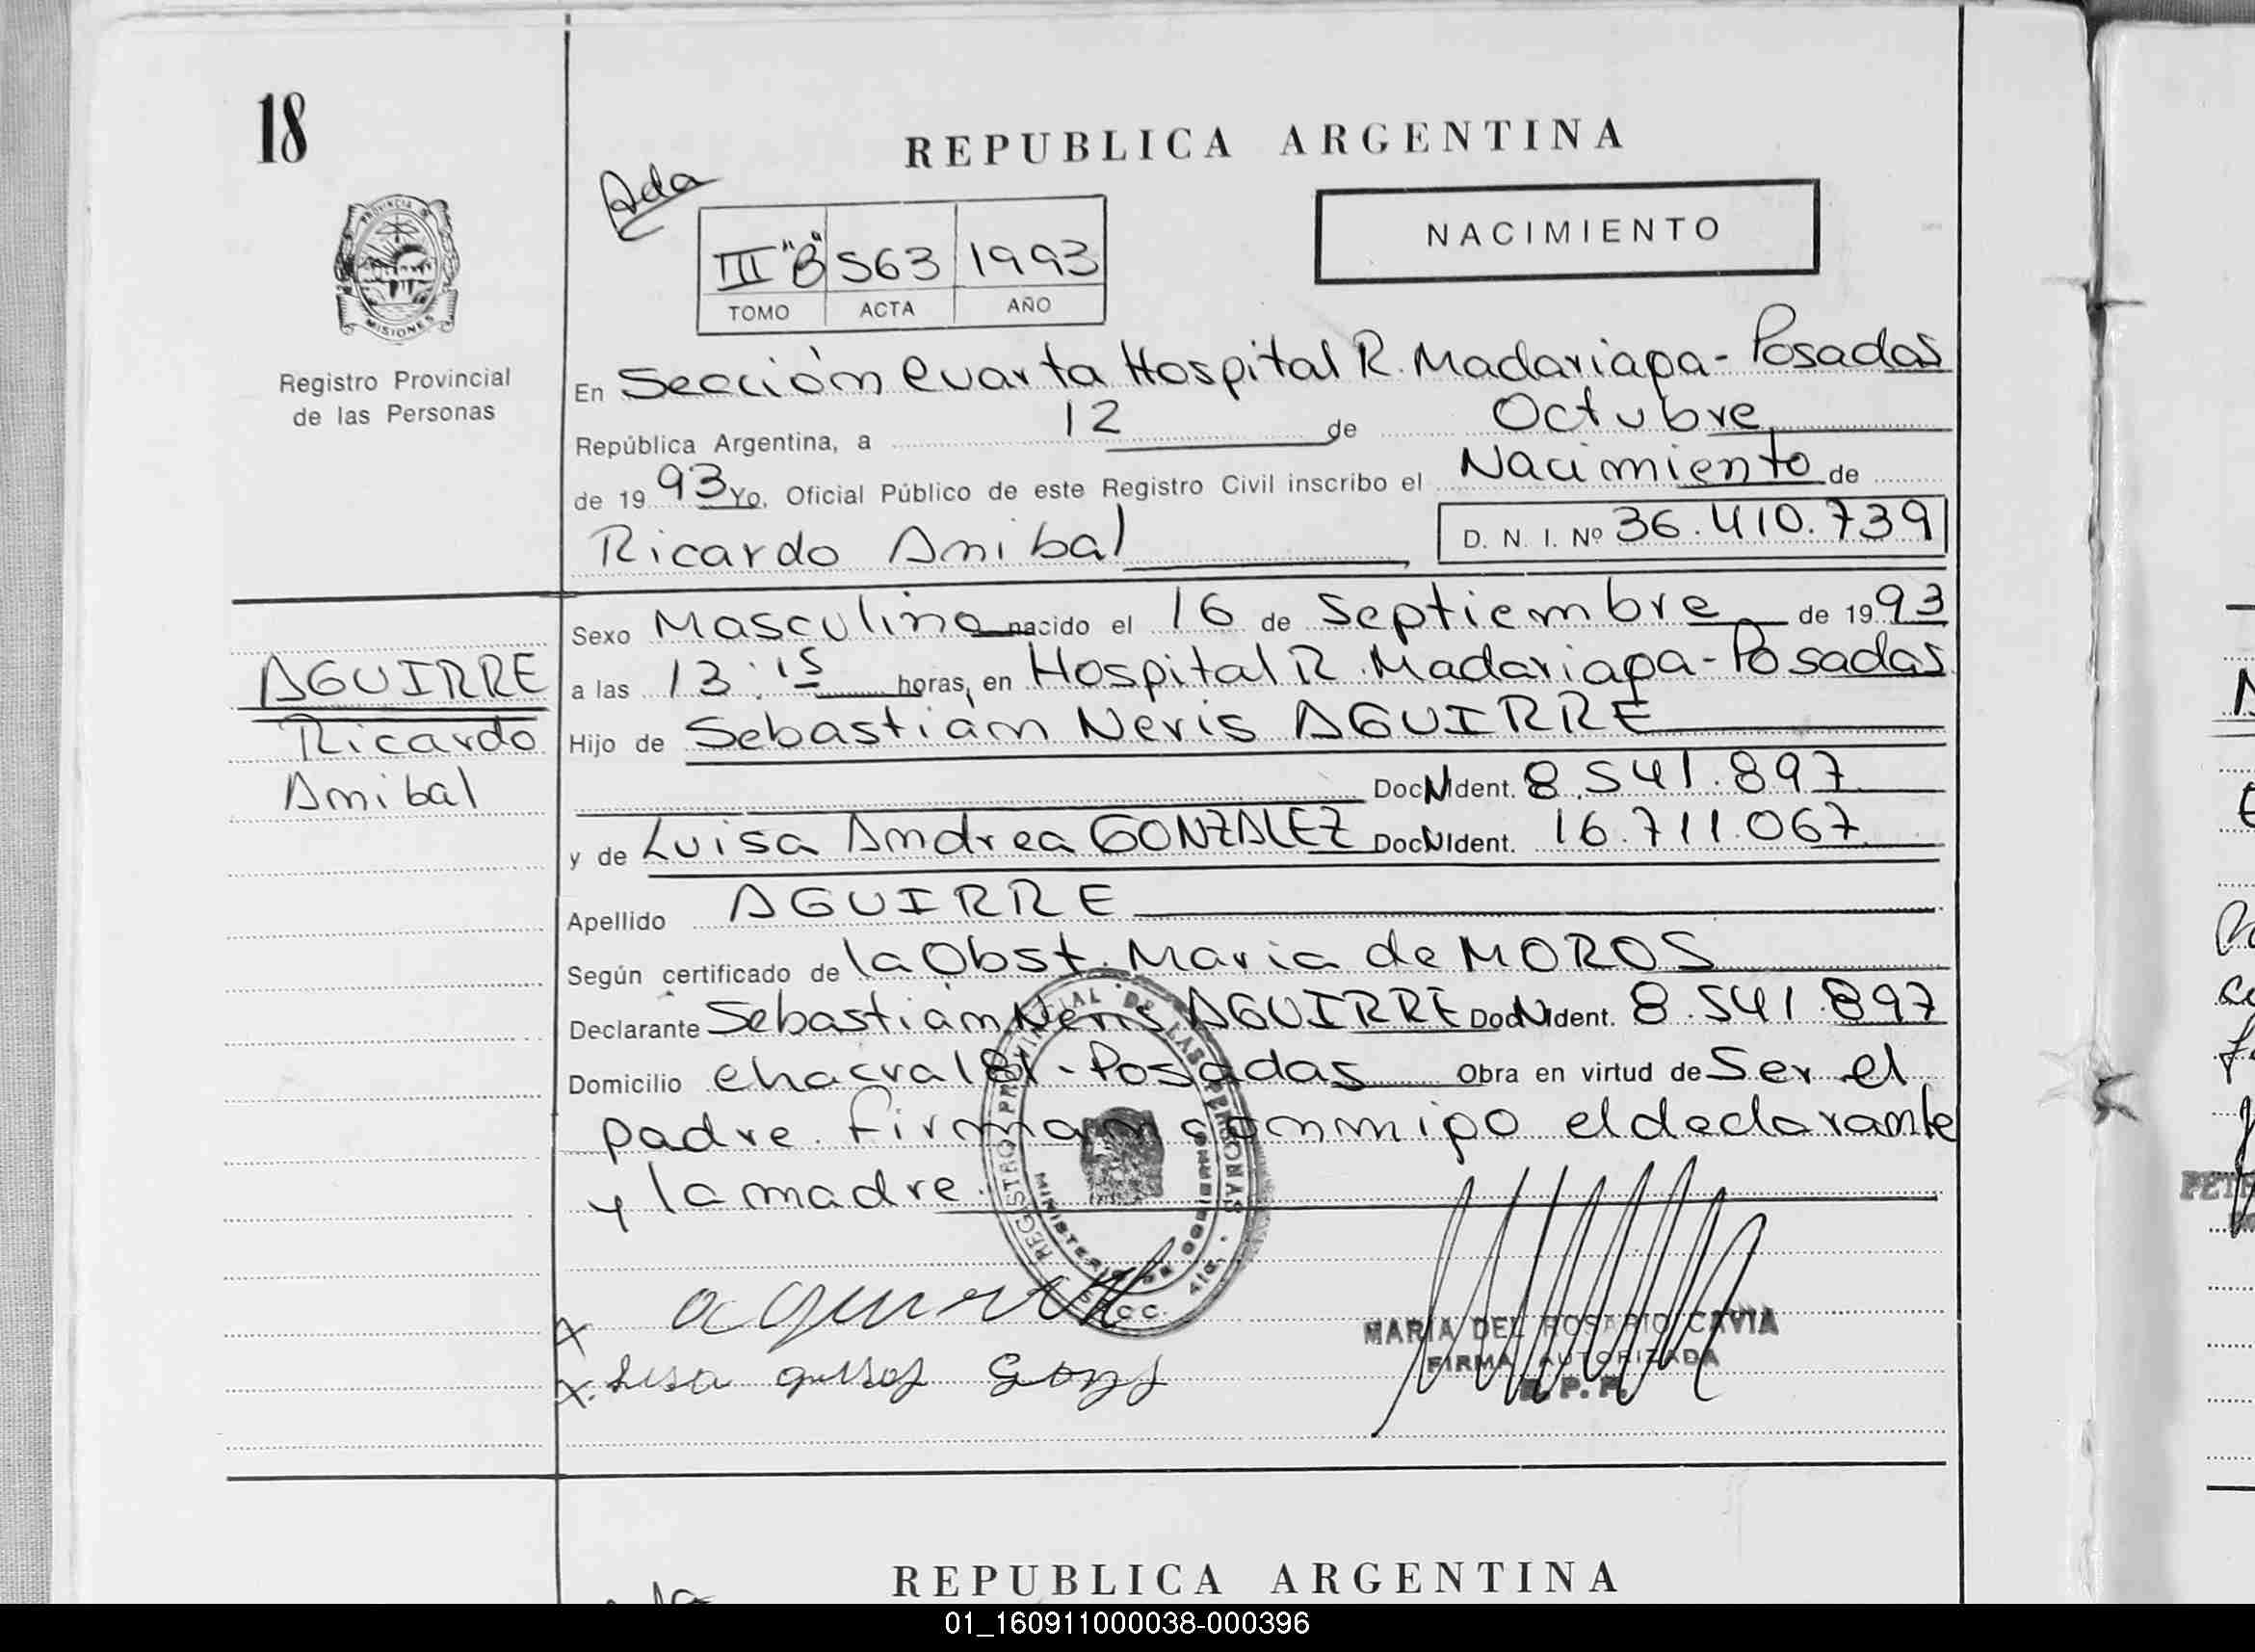 18
REPUBLICA ARGENTINA
Ada
III "B" 563 1993
TOMO ACTA AÑO
NACIMIENTO
PROVINCIA DE MISIONES
Registro Provincial
de las Personas
En Sección Cuarta Hospital R. Madariaga - Posadas
República Argentina, a 12 de Octubre
de 1993 Yo, Oficial Público de este Registro Civil inscribo el Nacimiento de
Ricardo Anibal D. N. I. Nº 36.410.739
Sexo Masculino nacido el 16 de Septiembre de 1993
AGUIRRE
Ricardo
Anibal
a las 13:15 horas, en Hospital R. Madariaga - Posadas
Hijo de Sebastián Neris AGUIRRE
Doc N Ident. 8.541.897
y de Luisa Andrea GONZALEZ Doc N Ident. 16.711.067
Apellido AGUIRRE
Según certificado de la Obst. Maria de MOROS
Declarante Sebastián Neris AGUIRRE Doc N Ident. 8.541.897
Domicilio chacra 181 - Posadas Obra en virtud de Ser el
padre. firman conmigo el declarante
y la madre.
REGISTRO PROVINCIAL DE LAS PERSONAS
MINISTERIO DE GOBIERNO
MARIA DEL ROSARIO CAVIA
FIRMA AUTORIZADA
R. P. P.
REPUBLICA ARGENTINA
01_160911000038-000396